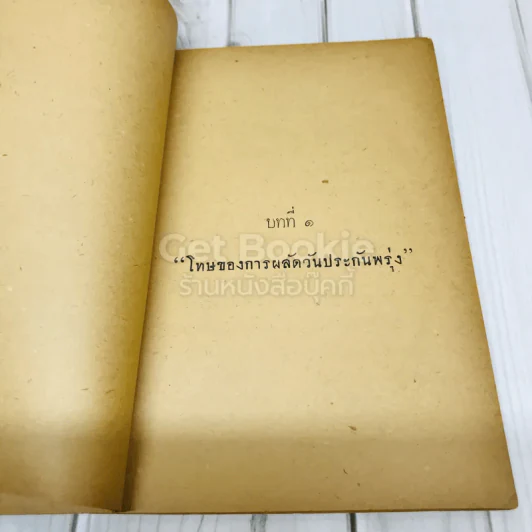 บทที่ ๑
Get Bookie
“โทษของการผลัดวันประกันพรุ่ง”
ร้านหนังสือบุ๊คกี้